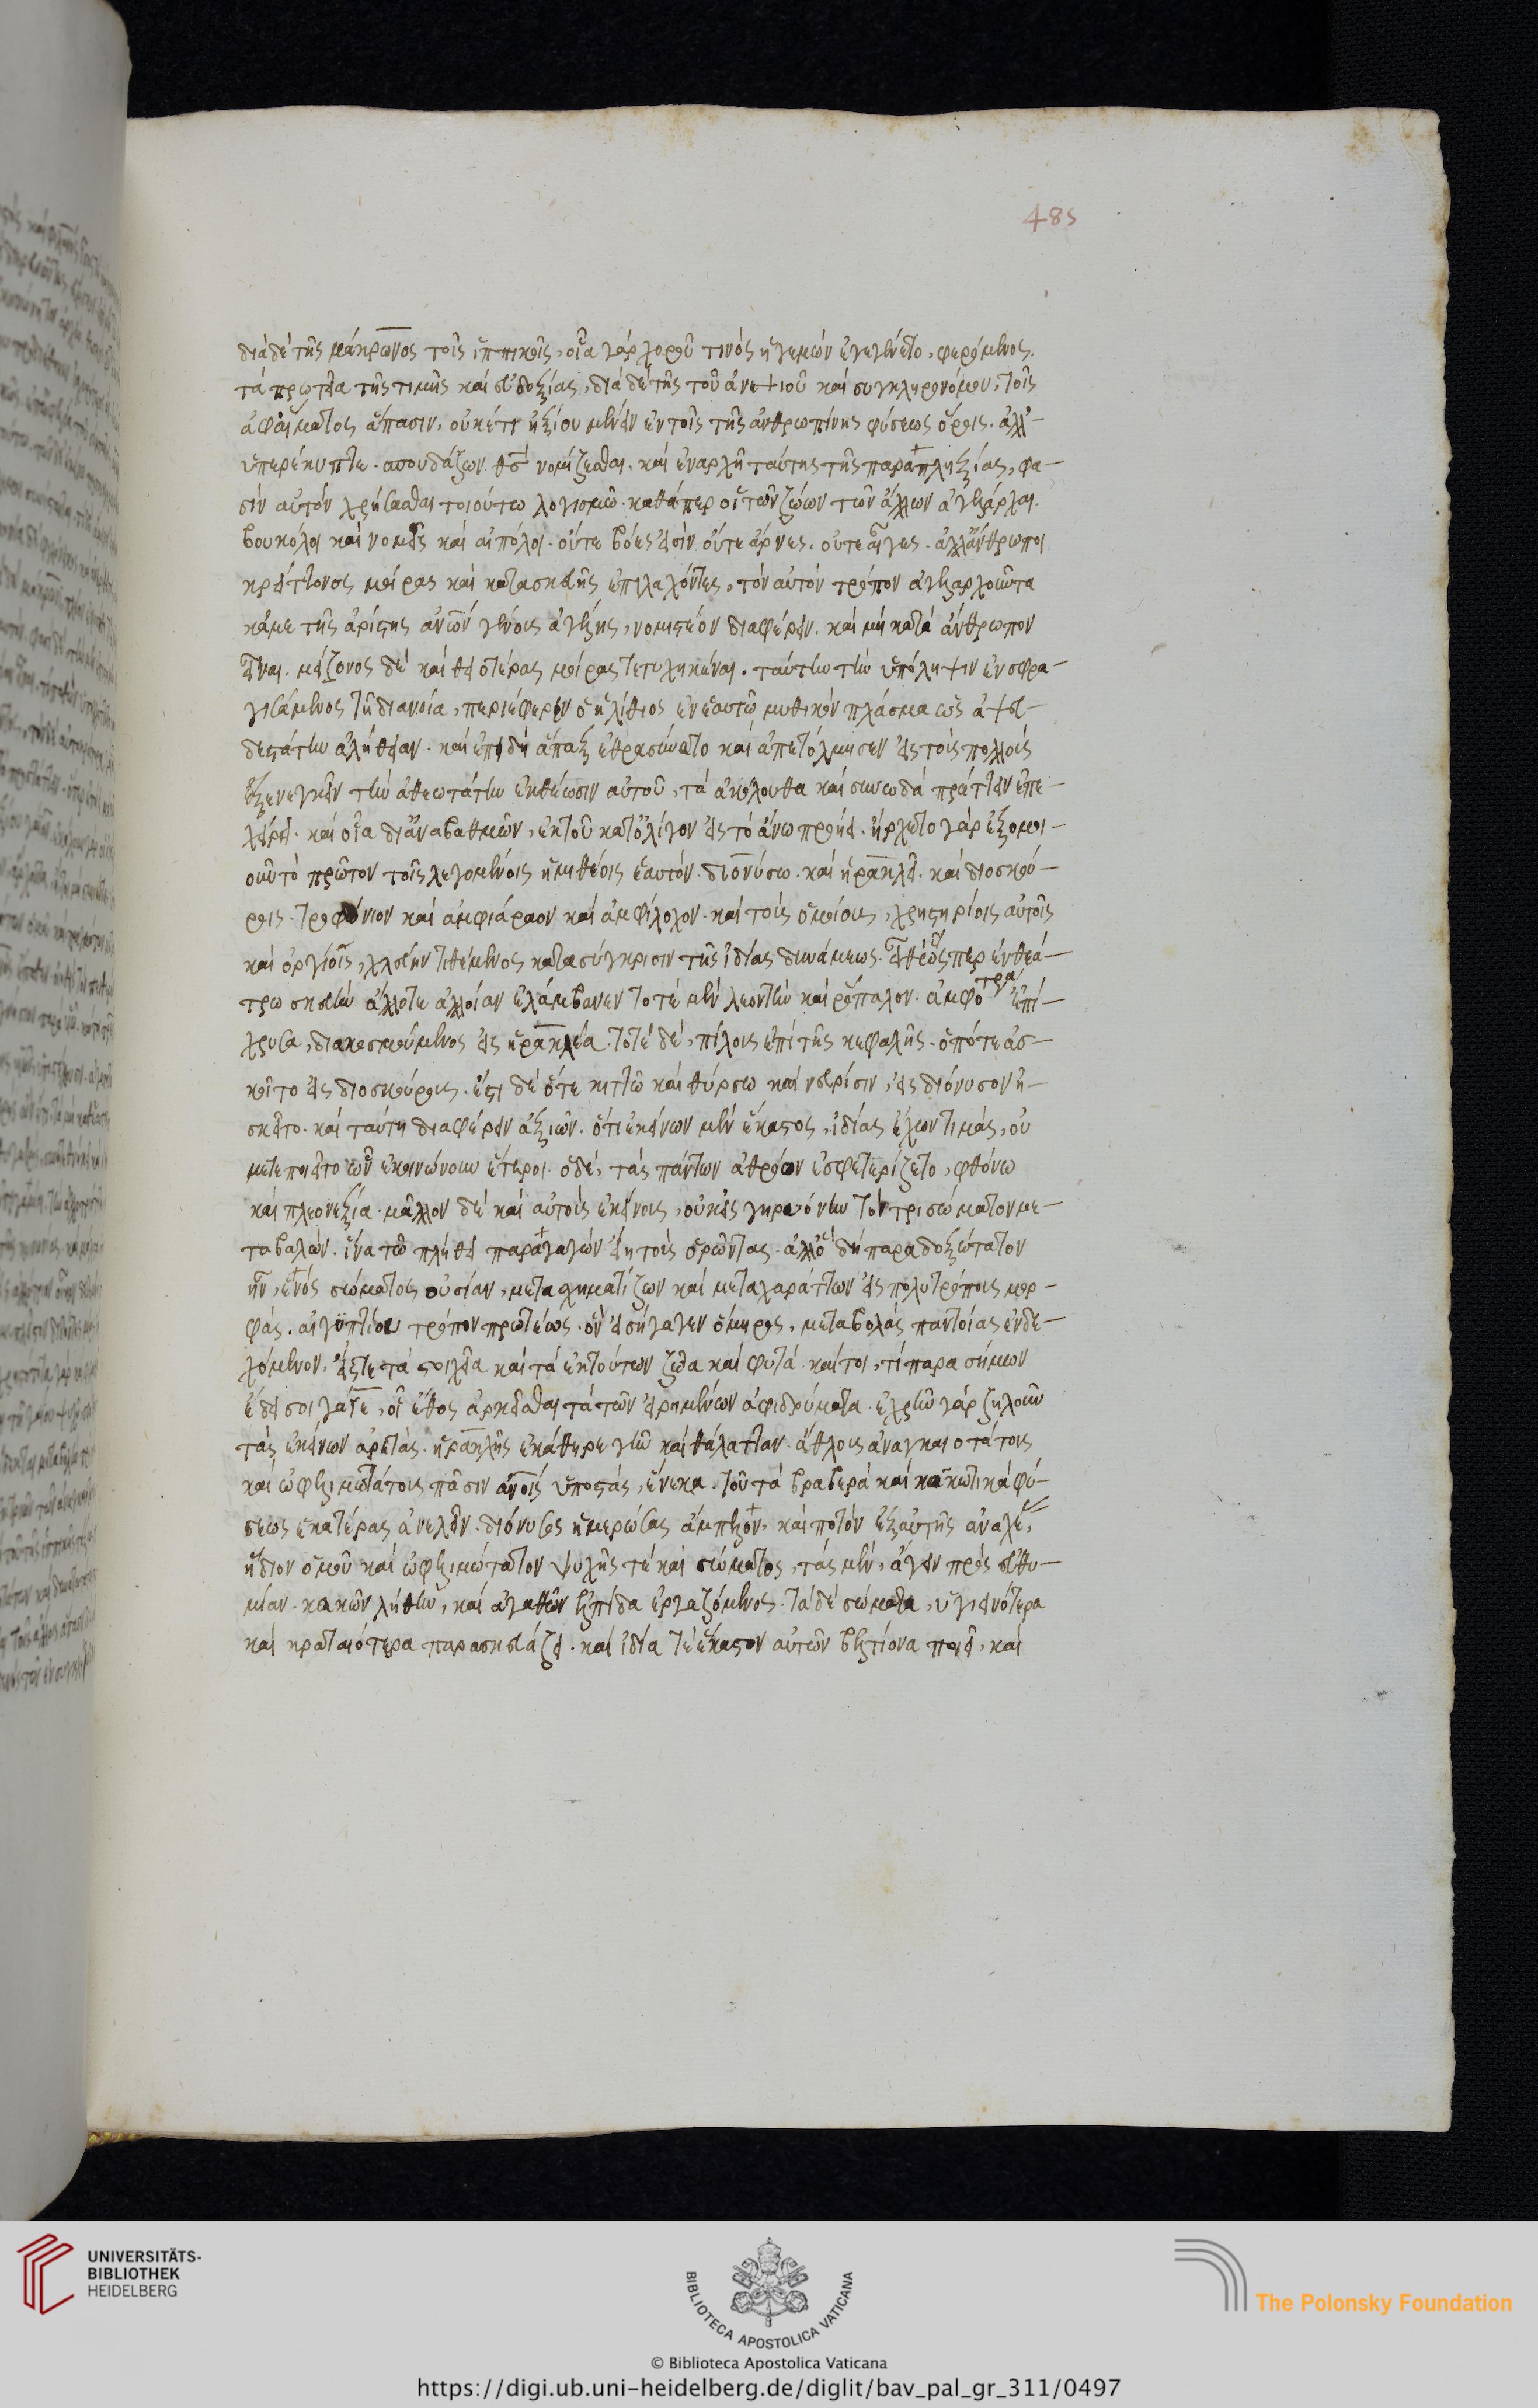 485
διὰ δὲ τῆς μάκρωνος τοῖς ἱππικοῖς, οἷα γὰρ χοροῦ τινὸς ἡγεμὼν ἐγεγένητο, φερόμενος
τὰ πρωτεῖα τῆς τιμῆς καὶ εὐδοξίας, διὰ δὲ τῆς τοῦ ἀνεψιοῦ καὶ συγκληρονόμου, τοῖς
ἀφαίματος ἅπασιν, οὐκέτι ἠξίου μένειν ἐν τοῖς τῆς ἀνθρωπίνης φύσεως ὅροις. ἀλλ᾽
ὑπερέκυπτε. σπουδάζων θσ νομίζεσθαι. καὶ ἐν ἀρχῆ ταύτης τῆς παραπληξίας, φα-
σὶν αὐτὸν χρήσασθαι τοιούτω λογισμῶ. καθάπερ οἱ τῶν ζώων τῶν ἄλλων ἀγελάρχαι.
βουκόλοι καὶ νομεῖς καὶ αἰπόλοι. οὔτε βόες εἰσὶν οὔτε ἄρνες. οὔτε αἶγες. ἀλλ᾽ ἄνθρωποι
κρείττονος μοίρας καὶ κατασκευῆς ἐπιλαχόντες, τὸν αὐτὸν τρόπον ἀγελαρχοῦντα
κἀμὲ τῆς ἀρίστης ἀνων γένους ἀγέλης, νομιστέον διαφέρειν. καὶ μὴ κατὰ ἄνθρωπον
εἶναι. μείζονος δὲ καὶ θειοτέρας μοίρας τετυχηκέναι. ταύτην τὴν ὑπόληψιν ἐνσφρα-
γισάμενος τῆ διανοία, περιέφερεν ὁ ἠλίθιος ἐν ἑαυτῶ μυθικὸν πλάσμα ὡς ἀψευ-
δεστάτην ἀλήθειαν. καὶ ἐπειδὴ ἅπαξ ἐθρασύνατο καὶ ἀπετόλμησεν εἰς τοὺς πολλοὺς
ἐξενεγκεῖν τὴν ἀθεωτάτην ἐκθέωσιν αὑτοῦ, τὰ ἀκόλουθα καὶ συνωδὰ πράττειν ἐπε-
χείρει. καὶ οἷα δι᾽ ἀναβαθμῶν, ἐκ τοῦ κατ᾽ ὀλίγον εἰς τὸ ἄνω προήει. ἤρχετο γὰρ ἐξομοι-
οῦν τὸ πρῶτον τοῖς λεγομένοις ἡμιθέοις ἑαυτόν. διονύσω. καὶ ἡρακλεῖ. καὶ διοσκού-
ροις. τροφώνιον καὶ ἀμφιάραον καὶ ἀμφίλοχον. καὶ τοὺς ὁμοίους, χρηστηρίοις αὐτοῖς
καὶ ὀργίοις, χλεύην τιθέμενος κατὰ σύγκρισιν τῆς ἰδίας δυνάμεως. εἶθ᾽ ὥσπερ ἐν θεά-
τρω σκευὴν ἄλλοτε ἀλλοίαν ἐλάμβανεν τοτὲ μὲν λεοντῆν καὶ ῥόπαλον. ἀμφότερα ἐπί-
χρυσα, διακοσμούμενος εἰς ἡρακλέα. τοτὲ δὲ, πίλους ἐπὶ τῆς κεφαλῆς. ὁπότε ἀσ-
κοῖτο εἰς διοσκούρους. ἔστι δὲ ὅτε κιττῶ καὶ θύρσω καὶ νεβρίσιν, εἰς διόνυσον ἠ-
σκεῖτο. καὶ ταύτη διαφέρειν ἀξιῶν. ὅτι ἐκείνων μὲν ἕκαστος, ἰδίας ἔχων τιμὰς, οὐ
μετεποιεῖτο ὧν ἐκοινώνουν ἕτεροι. ὁ δὲ, τὰς πάντων ἀθρόον ἐσφετερίζετο, φθόνω
καὶ πλεονεξία. μᾶλλον δὲ καὶ αὐτοὺς ἐκείνους, οὐκ εἰς γηρυόνην τὸν τρισώματον με-
ταβαλών. ἵνα τῶ πλήθει παραγαγὼν ᾖ τοὺς ὁρῶντας. ἀλλ᾽ ὃ δὴ παραδοξότατον
ἦν, ἑνὸς σώματος οὐσίαν, μετασχηματίζων καὶ μεταχαράττων εἰς πολυτρόπους μορ-
φάς. αἰγυπτίου τρόπον πρωτέως. ὃν εἰσήγαγεν ὅμηρος, μεταβολὰς παντοίας ἐνδε-
χόμενον, εἴς τε τὰ στοιχεῖα καὶ τὰ ἐκ τούτων ζῶα καὶ φυτά. καί τοι, τί παρασήμων
ἔδει σοι γάϊε, οἷς ἔθος ἀρκεῖσθαι τὰ τῶν εἰρημένων ἀφιδρύματα. ἐχρῆν γὰρ ζηλοῦν
τὰς ἐκείνων ἀρετάς. ἡρακλῆς ἐκάθηρε γῆν καὶ θάλατταν. ἄθλους ἀναγκαιοτάτους
καὶ ὠφελιμωτάτους πᾶσιν ἀνοις ὑποστὰς, ἕνεκα. τοῦ τὰ βραβερὰ καὶ κακωτικὰ φύ-
σεως ἑκατέρας ἀνελεῖν. διόνυσος ἡμερώσας ἄμπελον. καὶ ποτὸν ἐξ αὐτῆς ἀναχέ,
ἥδιον ὁμοῦ καὶ ὠφελιμώτατον ψυχῆς τὲ καὶ σώματος, τὰς μὲν, ἄγειν πρὸς εὐθυ-
μίαν. κακῶν λήθην, καὶ ἀγαθῶν ἐλπίδα ἐργαζόμενος. τὰ δὲ σώματα, ὑγιεινότερα
καὶ κραταιότερα παρασκευάζει. καὶ ἰδία τὲ ἕκαστον αὐτῶν βελτίονα ποιεῖ, καὶ
UNIVERSITÄTS-
BIBLIOTHEK
HEIDELBERG
BIBLIOTECA APOSTOLICA VATICANA
The Polonsky Foundation
© Biblioteca Apostolica Vaticana
https://digi.ub.uni-heidelberg.de/diglit/bav_pal_gr_311/0497